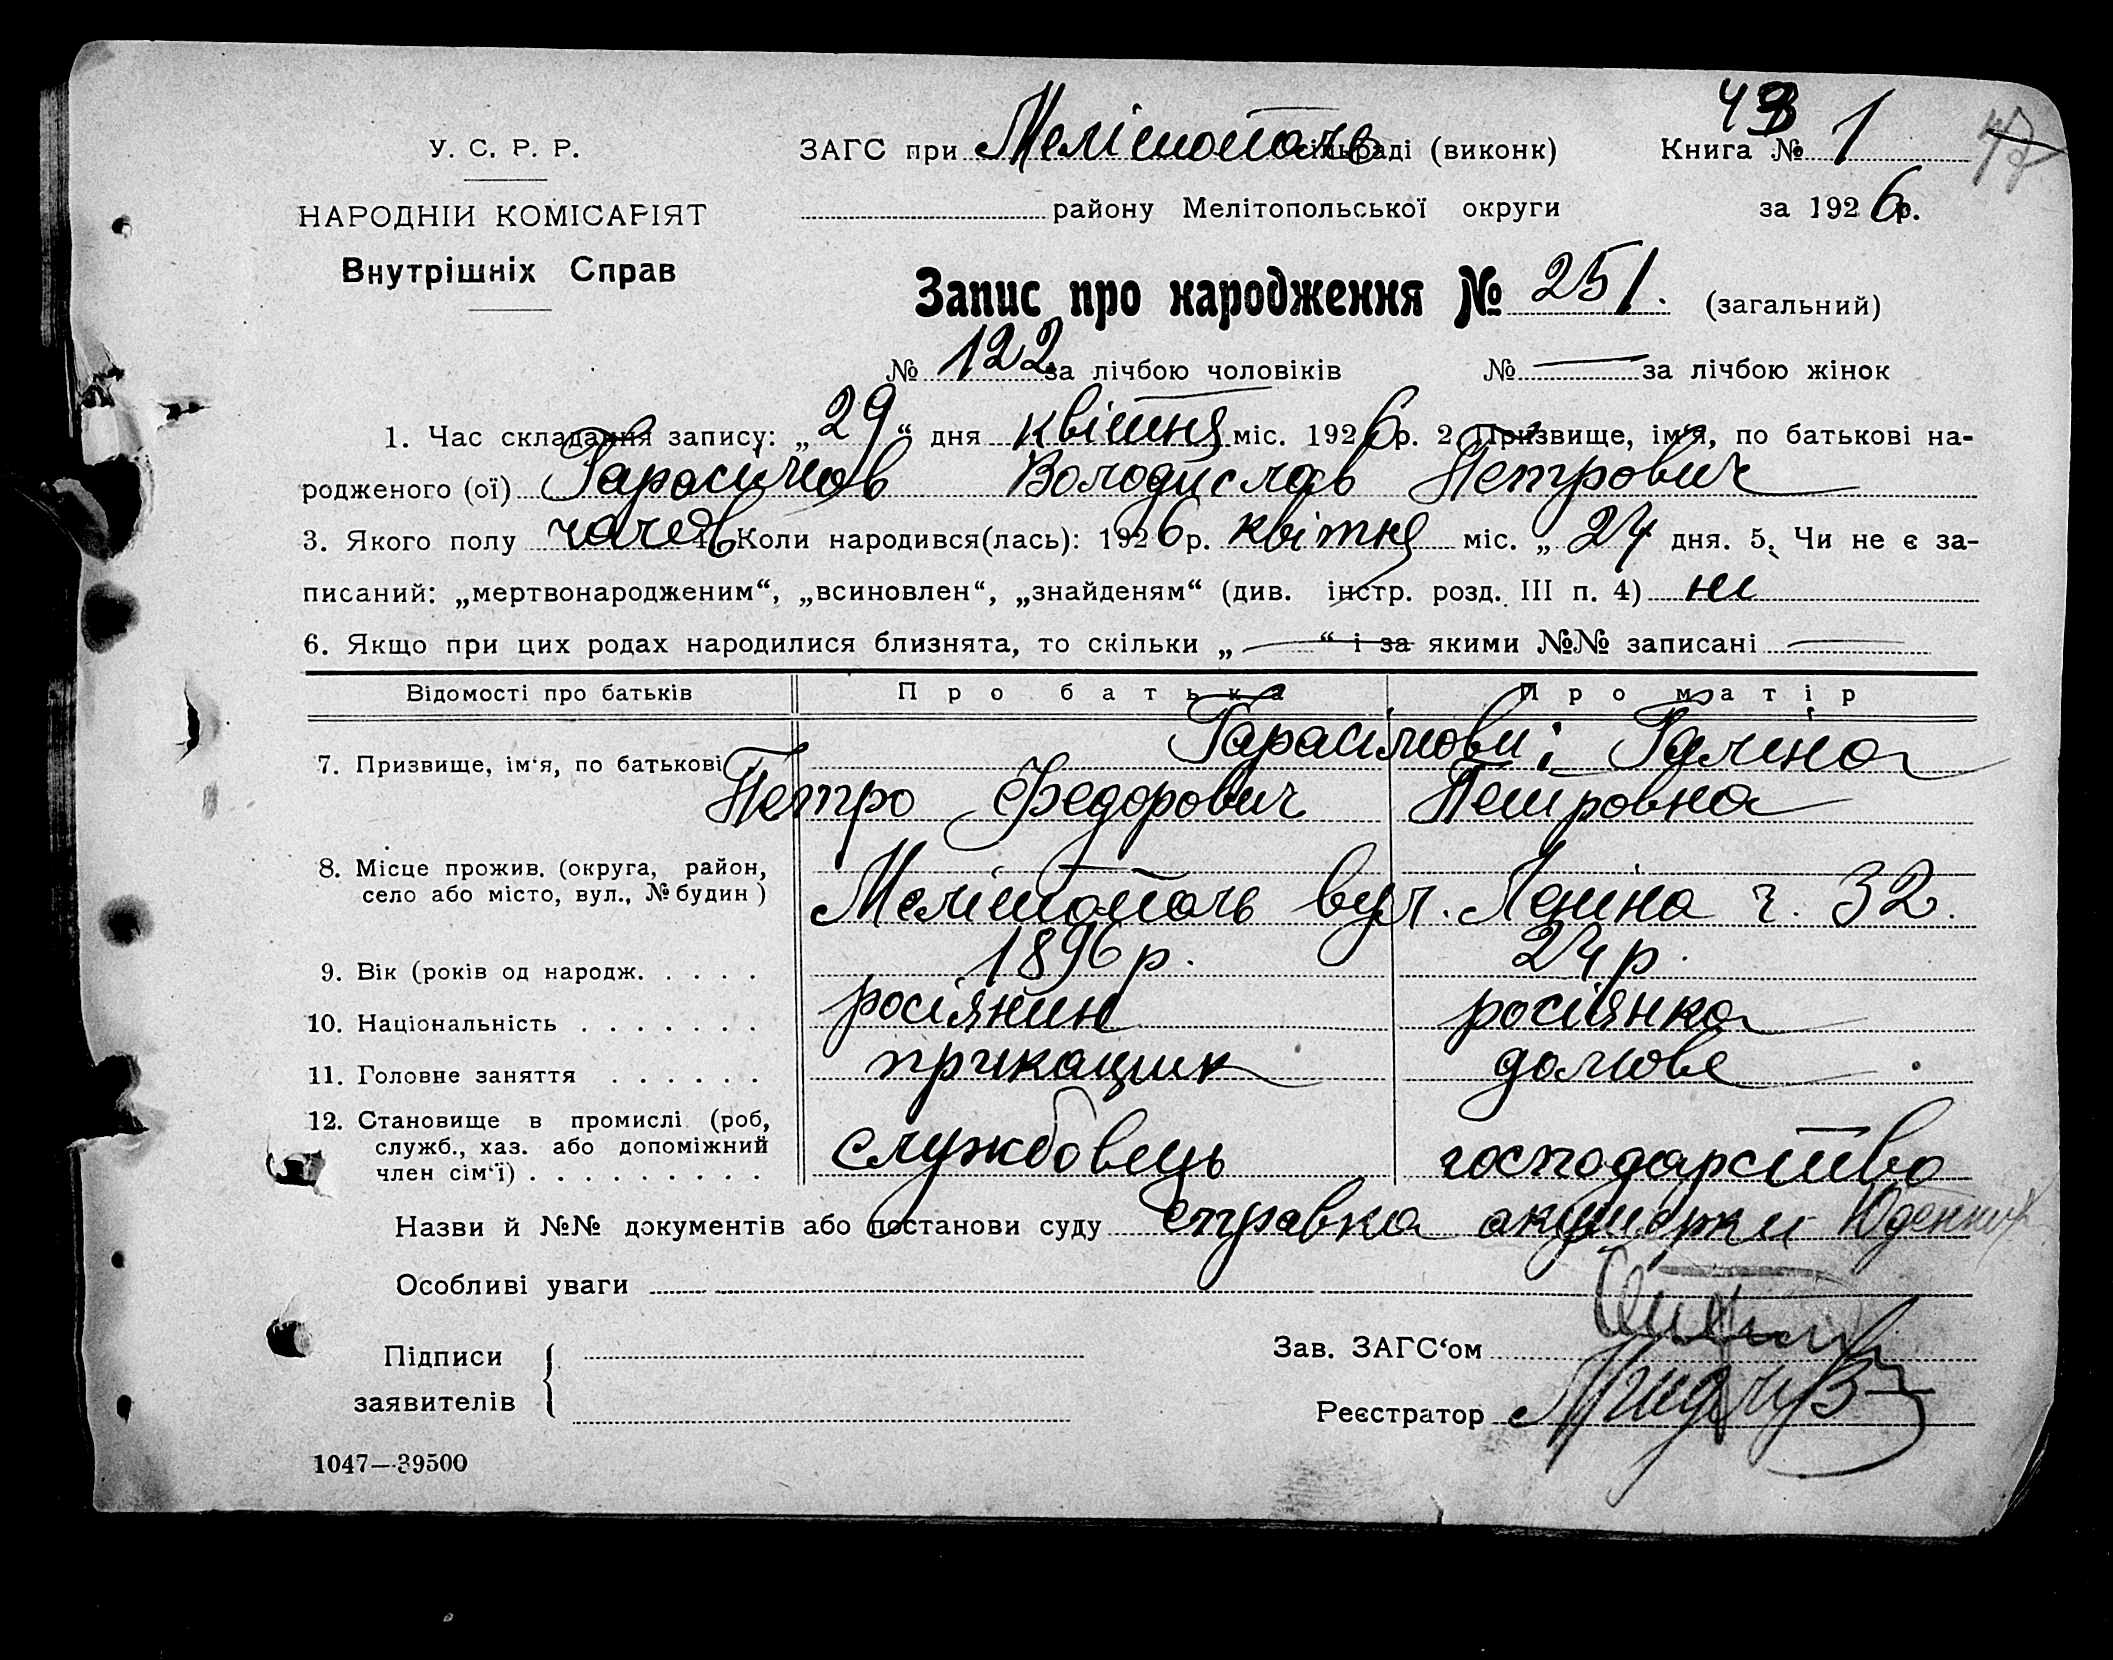 У. С. Р. Р.
НАРОДНІЙ КОМІСАРІЯТ
Внутрішніх Справ
ЗАГС при Мелітополь сільраді (виконк)
Книга № 1
47
району Мелітопольської округи
за 1926 р.
Запис про народження № 251. (загальний)
№ 122 за лічбою чоловіків № — за лічбою жінок
1. Час складання запису: „29“ дня квітня міс. 1926 р. 2. Призвище, ім'я, по батькові на-
родженого (ої) Гарасимов Володислав Петрович
3. Якого полу чолов 4. Коли народився(лась): 1926 р. квітня міс. „24 дня. 5. Чи не є за-
писаний: „мертвонародженим“, „всиновлен“, „знайденям“ (див. інстр. розд. III п. 4) ні
6. Якщо при цих родах народилися близнята, то скільки „—“ і за якими №№ записані —
Відомості про батьків Про батька Про матір
7. Призвище, ім'я, по батькові Гарасимови: Галина
Петро Федорович Петровна
8. Місце прожив. (округа, район,
село або місто, вул., № будин) Мелітополь вул. Леніна ч. 32.
9. Вік (років од народж. . . . . 1896 р. 24 р.
10. Національність . . . . . . . росіянин росіянка
11. Головне заняття . . . . . . прикащик домове
12. Становище в промислі (роб,
служб., хаз. або допоміжний
член сім'ї) . . . . . . . . . службовець господарство
Назви й №№ документів або постанови суду справка акушерки
Особливі уваги
Підписи
заявителів
Зав. ЗАГС'ом
Реєстратор
1047—39500